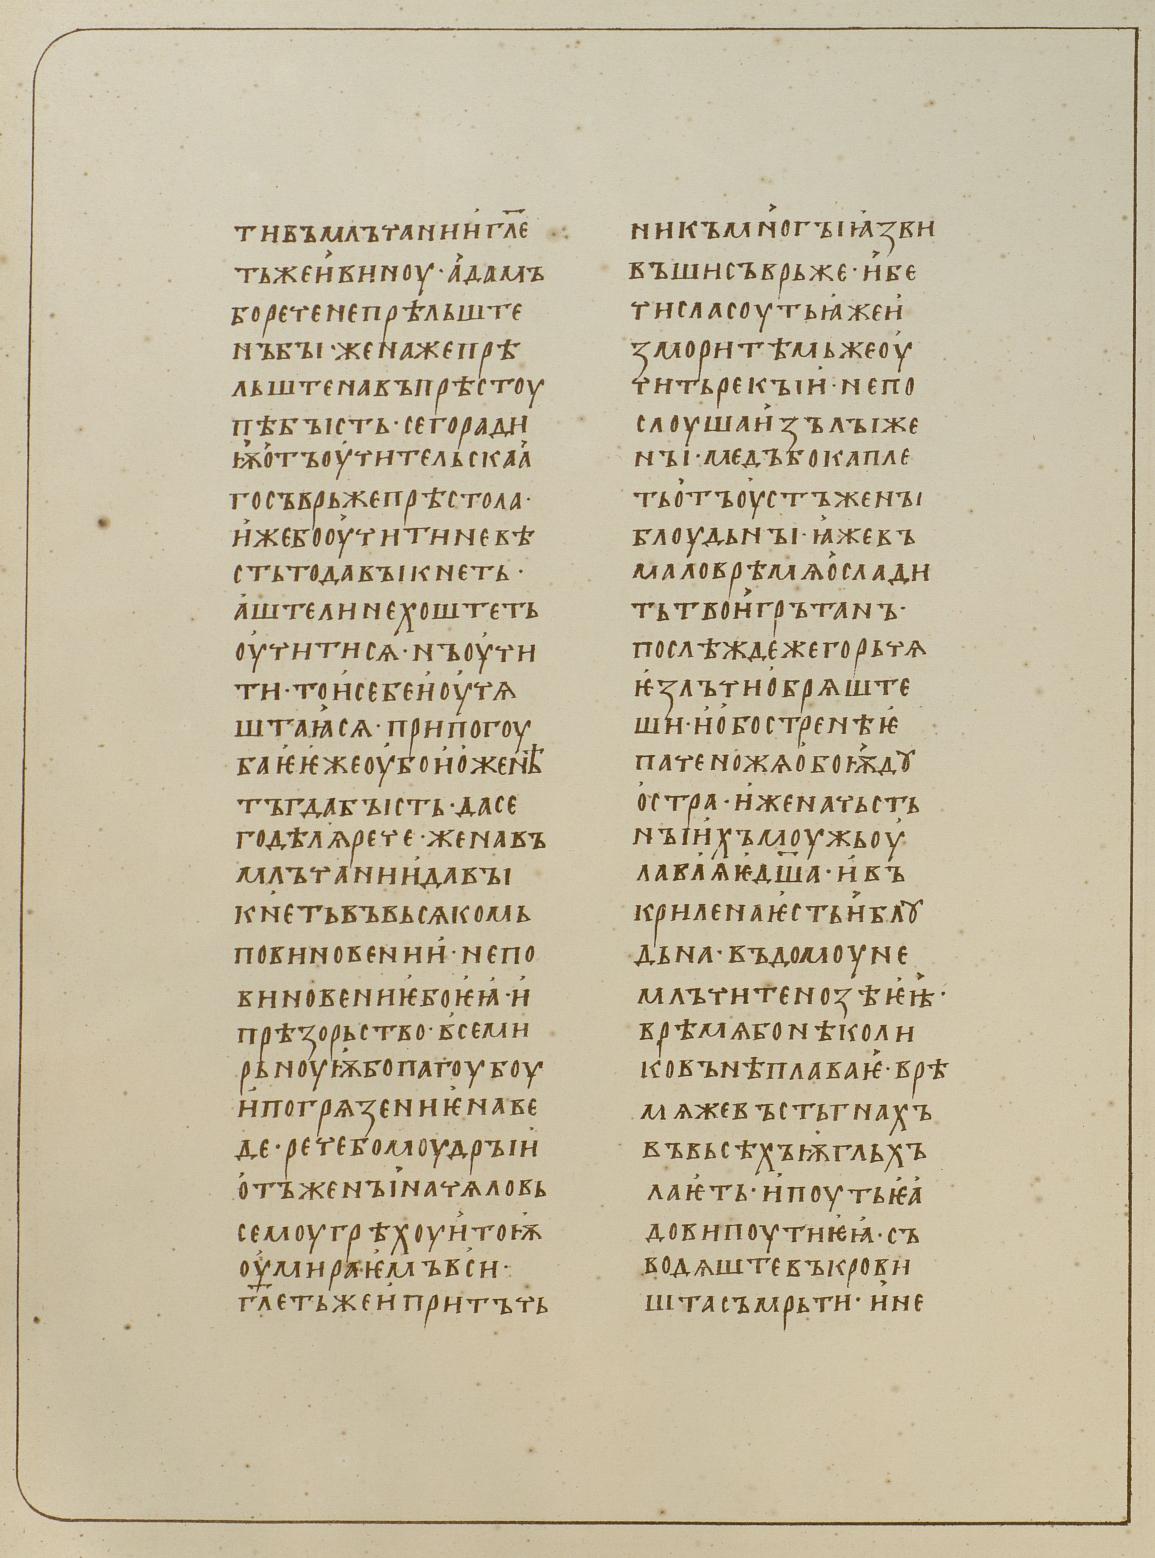 тивъмлъчаниигл҃е
тьжеивиноу·адамъ
бореченепрѣльште
нъбꙑ·женажепрѣ
льштенавъпрѣстоу
пѣбꙑсть·сегоради
ѭотъоучительскаа
госъврьжепрѣстола·
ижебооучитиневѣ
стьтодавꙑкнеть·
аштелинехоштеть
оучитисѧ·нъоучи
ти·тоисебеиоучѧ
штаꙗсѧ·припогоу
баѥѥжеоубоиоженѣ
тъгдабꙑсть·дасе
годѣлѧрече·женавъ
млъчаниидавꙑ
кнетьвъвьсѧкомь
повиновении·непо
виновениѥбоѥꙗ·и
прѣзорьство·всеми
рьноуѭбопагоубоу
ипогрѧзениѥнаве
де·речебомоудрꙑи
отъженꙑначѧловь
семоугрѣхоуитоѭ
оумираѥмъвси·
гл҃етьжеипритъчь
никъмногꙑꙗзви
въшисъврьже·ибе
числасоутьꙗжеи
зморитѣмьжеоу
читьрекꙑи·непо
слоушаизълꙑже
нꙑ·медъбокапле
тьотъоустъженꙑ
блоудьнꙑ·ꙗжевъ
маловрѣмѧослади
тьтвоигрътанъ·
послѣждежегорьчѧ
ѥзлъчиобрѧште
ши·иобостренѣѥ
паченожѧобоѭдꙋ
остра·иженачьсть
нꙑихъмоужьоу
лавлꙗѥдш҃а·ивъ
криленаѥстьиблꙋ
дьна·въдомоуне
млъчитенозѣѥѩ·
врѣмѧбонѣколи
ковънѣплаваѥ·врѣ
мѧжевъстьгнахъ
въвьсѣхъѭгльхъ
лаѥть·ипоутьѥꙗ
довипоутиѥꙗ·съ
водѧштевъкрови
штасъмрьти·ине